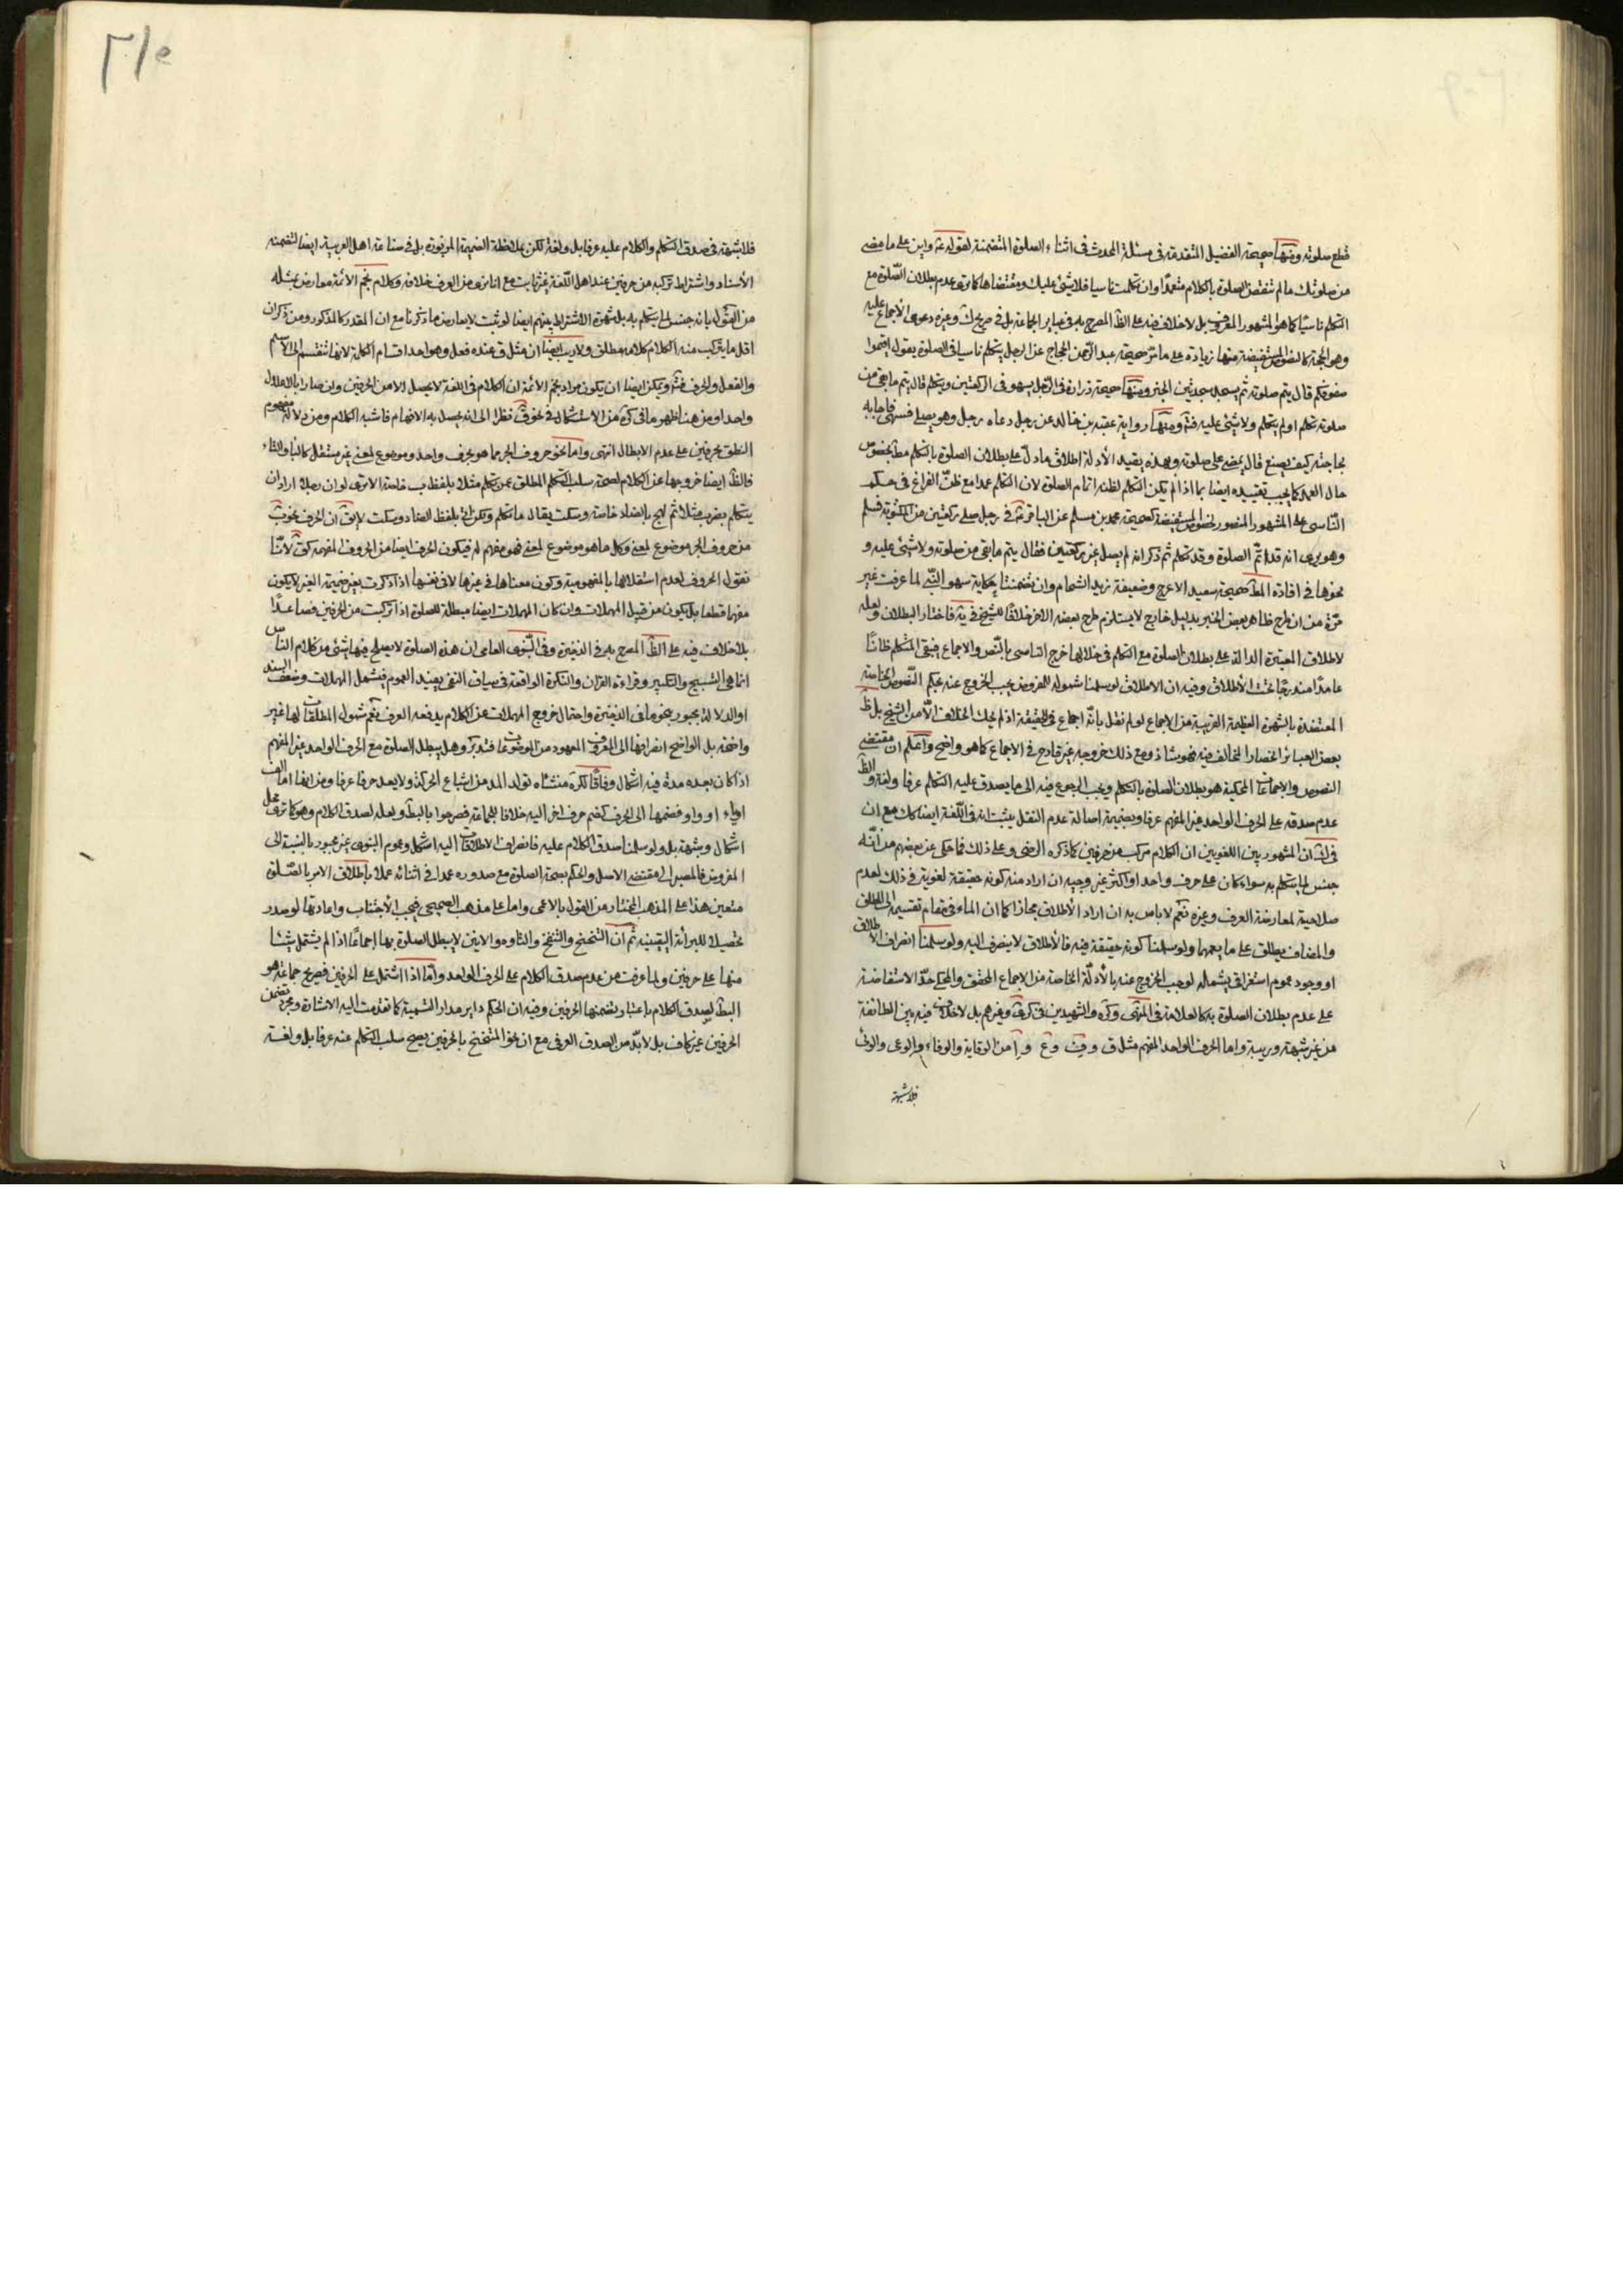 قطع صلوته ومنها صحيحة الفضيل المتقدمة فى مسئلة الحدث فى اثناء الصلوة المتضمنة لقوله ع وابن على ما مضى
من صلوتك ما لم تنقض الصلوة بالكلام متعمدا وان تكلمت ناسيا فلا شئ عليك ومقتضاها كما ترى عدم بطلان الصلوة مع
التكلم ناسيا كما هو المشهور المعروف بل لا خلاف فيه على الظ المصرح به فى عباير الجماعة بل فى صريح وغيره دعوى الاجماع عليه
وهو الحجة كالنصوص المستفيضة منها زيادة على ما مر صحيحة عبد الرحمن الحجاج عن الرجل يتكلم ناسيا فى الصلوة يقول اقيموا
صفوفكم قال يتم صلوته ثم يسجد سجدتين الخبر ومنها صحيحة زرارة فى الرجل يسهو فى الركعتين ويتكلم قال يتم ما بقى من
صلوته تكلم او لم يتكلم ولا شئ عليه ومنها رواية عقبة بن خالد عن رجل دعاه رجل وهو يصلى فسهى فاجابه
بحاجته كيف يصنع قال يمضى على صلوته وبهذه يقيد الأدلة اطلاق ما دل على بطلان الصلوة بالتكلم مط بخصوص
حال العمد كما يجب تقييده ايضا بما اذا لم يكن التكلم لظنه اتمام الصلوة لان التكلم عمدا مع ظن الفراغ فى حكم
الناسى على المشهور المنصور لخصوص المستفيضة كصحيحة محمد بن مسلم عن الباقر ع فى رجل صلى ركعتين من المكتوبة فسلم
وهو يرى انه قد اتم الصلوة وقد تكلم ثم ذكر انه لم يصل غير ركعتين فقال يتم ما بقى من صلوته ولا شئ عليه و
نحوها فى افادة المط صحيحة سعيد الاعرج وضعيفة زيد الشحام وان تضمنتا حكاية سهو النبى لما عرفت غير
مرة من ان طرح ظاهر بعض الخبر بدليل خارج لا يستلزم طرح بعضه الاخر خلافا للشيخ فى ية فاختار البطلان ولعله
لاطلاق المعتبرة الدالة على بطلان الصلوة مع التكلم فى خلالها خرج الناسى بالنص والاجماع فيبقى المتكلم ظانا
عامدا مندرجا تحت الأطلاق وفيه ان الاطلاق لو سلمنا شموله للمفروض يجب الخروج عنه بحكم النصوص الخاصة
المعتضدة بالشهرة العظيمة القريبة من الاجماع لو لم نقل بانه اجماع فى الحقيقة اذ لم يحك الخلاف الا من الشيخ بل ظ
بعض العباير انحصار المخالف فيه فهو شاذ ومع ذلك خروجه غير قادح فى الاجماع كما هو واضح واعلم ان مقتضى
النصوص والاجماعات المحكية هو بطلان الصلوة بالتكلم ويجب الرجوع فيه الى ما يصدق عليه التكلم عرفا ولغة والظ
عدم صدقه على الحرف الواحد غير المفهم عرفا وبضميمة اصالة عدم النقل يثبت انه فى اللغة ايضا كك مع ان
فى ان المشهور بين اللغويين ان الكلام مركب من حرفين كما ذكره الرضى وعلى ذلك فما حكى عن بعضهم من انه
جنس لما يتكلم به سواء كان على حرف واحد او اكثر غير وجيه ان اراد منه كونه حقيقة لغوية فى ذلك لعدم
صلاحية لمعارضة العرف وغيره نعم لا باس به ان اراد الأطلاق مجازا كما ان الماء فى مقام تقسيمه الى المطلق
والمضاف يطلق على ما يعمهما ولو سلمنا كونه حقيقة فيه فالأطلاق لا ينصرف اليه ولو سلمنا انصراف الاطلاق
او وجود عموم استغراقى يشمله لوجب الخروج عنه بالأدلة الخاصة من الاجماع المحقق والمحكى حد الاستفاضة
على عدم بطلان الصلوة به كالعلامة فى المنتهى وكره والشهيدين فى كرى وغيرهم بل لا خلاف فيه بين الطائفة
من غير شبهة وريبة واما الحرف الواحد المفهم مثل ق و ف و ع و إ من الوقاية والوفاء والوعى والوئى
فلا شبهة
فلا شبهة فى صدق التكلم والكلام عليه عرفا بل ولغة لكن بملاحظة الضميمة المزبورة بل فى صناعة اهل العربية ايضا لتضمنه
الأسناد واشتراط تركبه من حرفين عند اهل اللغة غير ثابت مع انا نرى من العرف خلافه وكلام نجم الأئمة معارض بمثله
من القول بانه جنس لما يتكلم به بل شهرة الاشتراط بينهم ايضا لو ثبت لا يعارض ما ذكرنا مع ان المقدر كالمذكور ومن ذكر ان
اقل ما يتركب منه الكلام كلامه مطلق ولا ريب ايضا ان مثل ق عنده فعل وهو احد اقسام الكلمة لانها تنقسم الى الاسم
والفعل والحرف ويمكن ايضا ان يكون مراد نجم الائمة ان الكلام فى اللغة لا يحصل الا من الحرفين وان صار بالاعلال
واحدا ومن هنا ظهر ما فى كره من الاستشكال فى نحو ق نظرا الى انه يحصل به الافهام فاشبه الكلام ومن دلالة مفهوم
النطق بحرفين على عدم الابطال انتهى واما نحو حروف الجر مما هو بحرف واحد وموضوع لمعنى غير مستقل كالباء والتاء
فالظ ايضا خروجها عن الكلام لصحة سلب التكلم المطلق عمن تكلم مثلا بلفظ ب خاصة الا ترى لو ان رجلا اراد ان
يتكلم بضرب مثلا ثم لهج بالضاد خاصة وسكت يقال ما تكلم ولكن اتى بلفظ الضاد وسكت لا يق ان الحرف نحو ب
من حروف الجر موضوع لمعنى وكل ما هو موضوع لمعنى فهو مفهم له فيكون الحرف ايضا من الحروف المفهمة لأنا
نقول الحروف لعدم استقلالها بالمفهومية وكون معناها فى غيرها لا فى نفسها اذا ذكرت بغير ضميمة الغير لا يكون
مفهما قطعا بل يكون من قبيل المهملات وان كان المهملات ايضا مبطلة للصلوة اذا تركبت من الحرفين فصاعدا
بلا خلاف فيه على الظ المصرح به فى الذخيرة وفى النبوى العامى ان هذه الصلوة لا يصلح فيها شئ من كلام الناس
انما هى التسبيح والتكبير وقراءة القران والنكرة الواقعة فى سياق النفى يفيد العموم فيشمل المهملات وضعف السند
او الدلالة مجبور بنحو ما فى الذخيرة واحتمال خروج المهملات عن الكلام يدفعه العرف نعم شمول المطلقات لها غير
واضحة بل الواضح انصرافها الى المعروف المعهود من الموضوعات فتدبر وهل يبطل الصلوة مع الحرف الواحد غير المفهم
اذا كان بعده مدة فيه اشكال وفاقا لكره منشئاه تولد المد من اشباع الحركة ولا يعد حرفا عرفا ومن انها اما الف
او ياء او واو فضمها الى الحرف كضم حرف اخر اليه خلافا للجماعة فصرحوا بالبط ولعله لصدق الكلام وهو كما ترى محل
اشكال وشبهة بل ولو سلمنا صدق الكلام عليه فانصراف الاطلاقات اليه اشكل وعموم النبوى غير مجبور بالنسبة الى
المفروض فالمصير الى مقتضى الاصل والحكم بصحة الصلوة مع صدوره عمدا فى اثنائه عملا باطلاق الامر بالصلوة
متعين هذا على المذهب المختار من القول بالاعمى واما على مذهب الصحيحى فيجب الأجتناب واعادتها لو صدر
تحصيلا للبرائة اليقينية ثم ان التنحنح والتنفخ والتاوه والانين لا يبطل الصلوة بها اجماعا اذا لم يشتمل شيئا
منها على حرفين ولما عرفت من عدم صدق الكلام على الحرف الواحد واما اذا اشتمل على الحرفين فصريح جماعة هو
البط لصدق الكلام باعتبار تضمنها الحرفين وفيه ان الحكم داير مدار التسمية كما تقدمت اليه الاشارة ومجرد تضمن
الحرفين غير كاف بل لا بد من الصدق العرفى مع ان نحو المتنحنح بالحرفين يصح سلب التكلم عنه عرفا بل ولغة